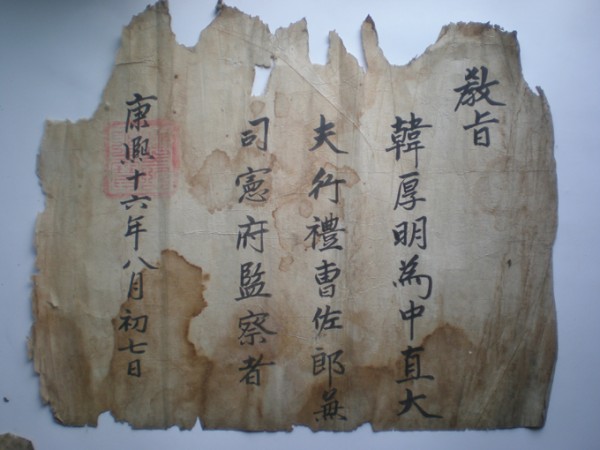 教旨
韓厚明為中直大
夫行禮曹佐郎兼
司憲府監察者
康熙十六年八月初七日